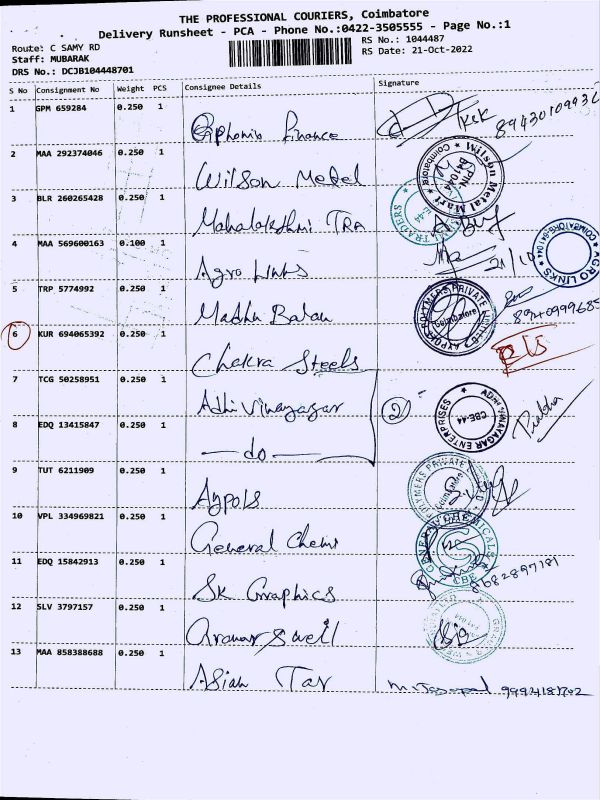 THE PROFESSIONAL COURIERS, Coimbatore
Delivery Runsheet - PCA - Phone No.:0422-3505555 - Page No.:1
Route: C SAMY RD
RS No.: 1044487
Staff: MUBARAK
RS Date: 21-Oct-2022
DRS No.: DCJB104448701
S No Consignment No Weight PCS Consignee Details Signature
1 GPM 659284 0.250 1
Finance
2 MAA 292374046 0.250 1
Wilson Metal
Wilson Metal Mart Coimbatore
3 BLR 260265428 0.250 1
Mahalakshmi TRA
TRADERS
4 MAA 569600163 0.100 1
Agro Links
21/10
AGRO LINKS
5 TRP 5774992 0.250 1
Madhu Balan
POLYMERS PRIVATE
Coimbatore
6 KUR 694065392 0.250 1
Chakra Steels
7 TCG 50258951 0.250 1
Adhi Vinayagar
2
ADHI VINAYAGAR ENTERPRISES
CBE-44
Prabha
8 EDQ 13415847 0.250 1
— do —
9 TUT 6211909 0.250 1
Aypols
POLYMERS PRIVATE
10 VPL 334969821 0.250 1
General Chemi
GENERAL CHEMICALS
CBE
11 EDQ 15842913 0.250 1
SK Graphics
8682897181
12 SLV 3797157 0.250 1
13 MAA 858388688 0.250 1
Asian Tar